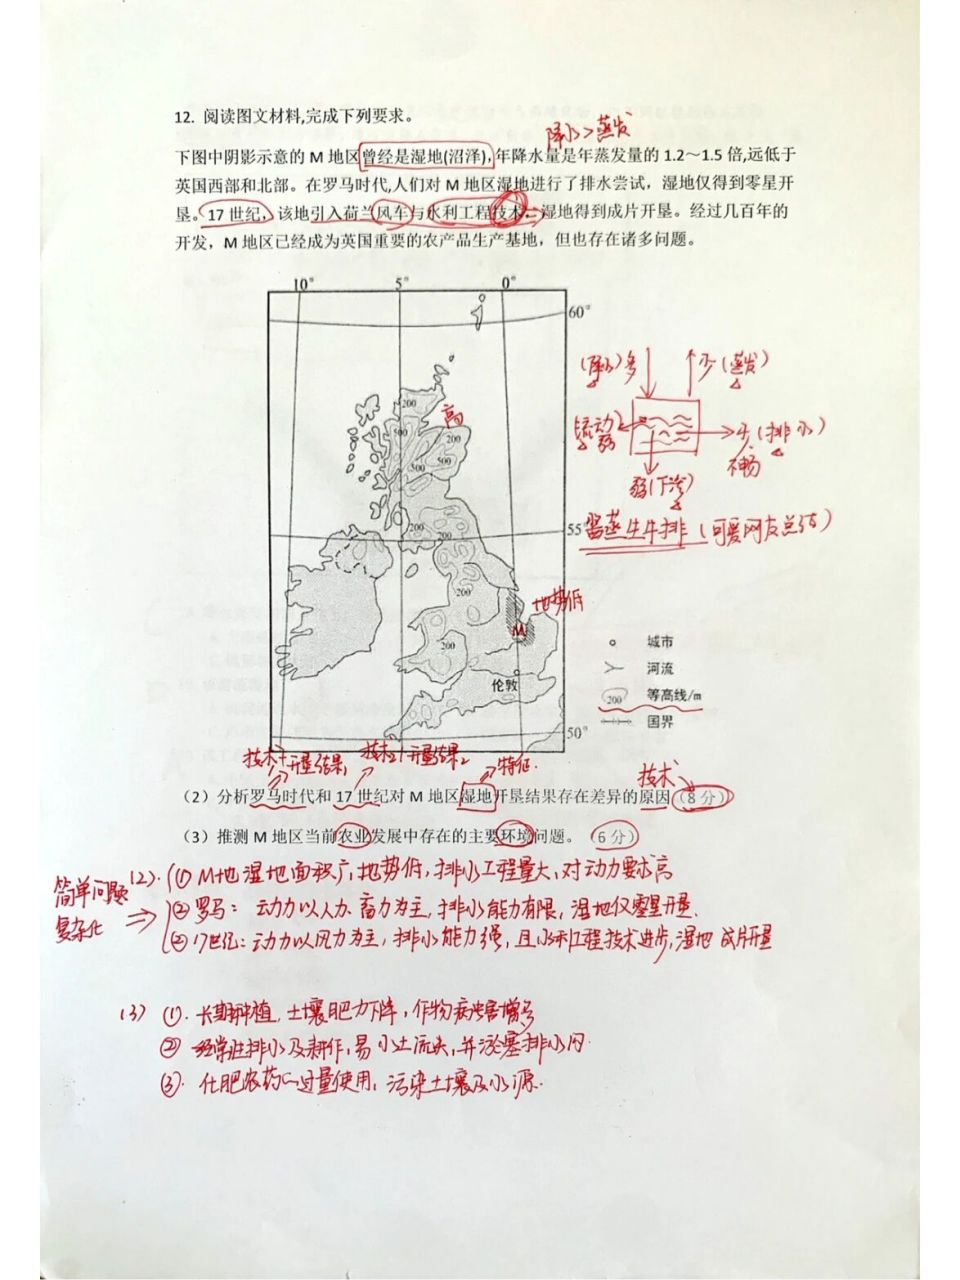 12. 阅读图文材料,完成下列要求。
降水>蒸发
下图中阴影示意的 M 地区曾经是湿地(沼泽),年降水量是年蒸发量的 1.2～1.5 倍,远低于
英国西部和北部。在罗马时代,人们对 M 地区湿地进行了排水尝试，湿地仅得到零星开
垦。17 世纪，该地引入荷兰风车与水利工程技术，湿地得到成片开垦。经过几百年的
开发，M 地区已经成为英国重要的农产品生产基地，但也存在诸多问题。
10° 5° 0°
60°
(降水)多 少(蒸发)
200
高
500 200
流动弱 少(排水)
500 500
不畅
弱(下渗)
200 200
55°
留蒸牛牛排(可爱网友总结)
200
地势低
M
200
城市
河流
伦敦
200 等高线/m
国界
50°
技术1 开垦结果1 技术2+开垦结果2 特征.
技术
（2）分析罗马时代和 17 世纪对 M 地区湿地开垦结果存在差异的原因（8 分）
（3）推测 M 地区当前农业发展中存在的主要环境问题。（6 分）
简单问题
复杂化
(2). ① M地湿地面积广,地势低,排水工程量大,对动力要求高
② 罗马: 动力以人力.畜力为主,排水能力有限,湿地仅零星开垦.
② 17世纪:动力以风力为主,排水能力强,且水利工程技术进步,湿地成片开垦
(3) ①. 长期种植,土壤肥力下降,作物病虫害增多
② 经常性排水及耕作,易水土流失,并淤塞排水网.
③. 化肥农药过量使用,污染土壤及水源.